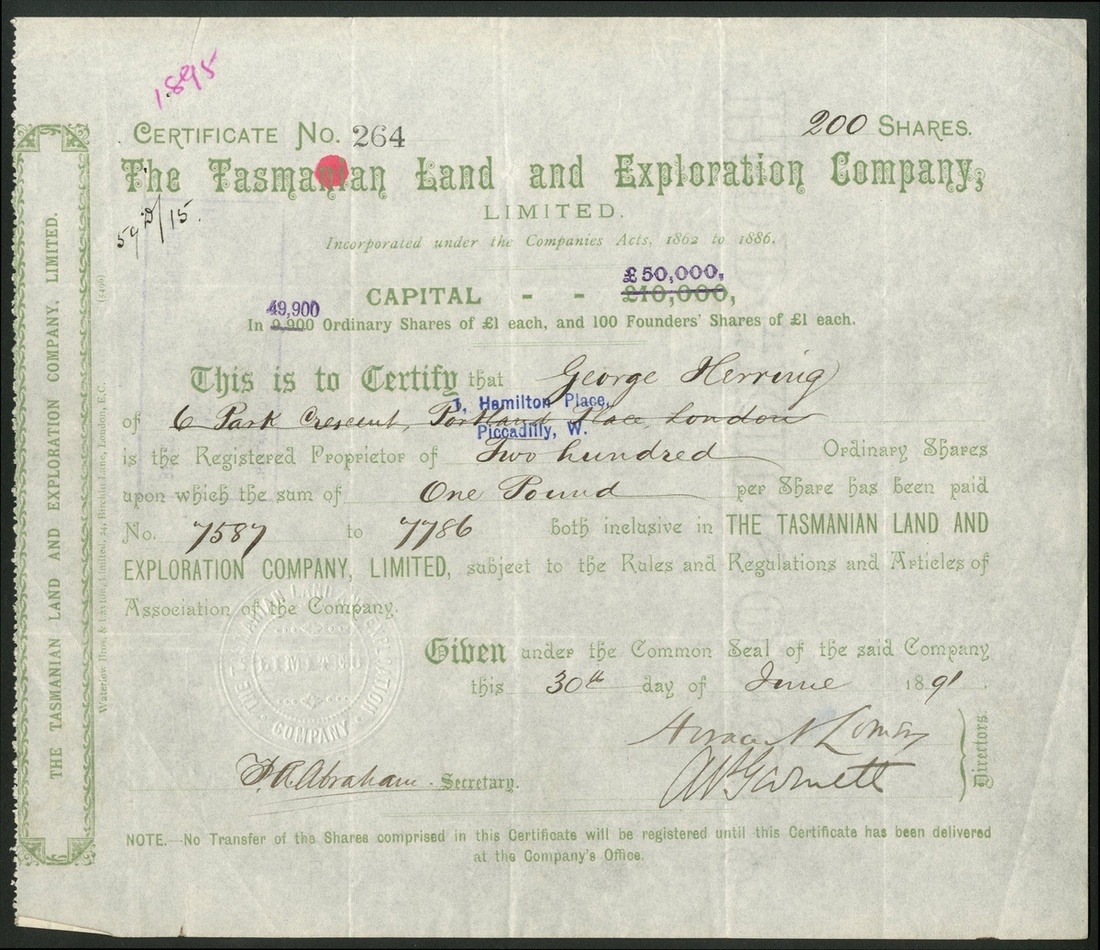 1895
CERTIFICATE No. 264
200 SHARES.
The Tasmanian Land and Exploration Company,
LIMITED.
59 D/15.
Incorporated under the Companies Acts, 1862 to 1886.
£50,000,
CAPITAL - - £10,000,
49,900
In 9,900 Ordinary Shares of £1 each, and 100 Founders' Shares of £1 each.
This is to Certify that George Herring
1, Hamilton Place,
of 6 Park Crescent, Portland Place, London
Piccadilly, W.
is the Registered Proprietor of Two hundred Ordinary Shares
upon which the sum of One Pound per Share has been paid
No. 7587 to 7786 both inclusive in THE TASMANIAN LAND AND
EXPLORATION COMPANY, LIMITED, subject to the Rules and Regulations and Articles of
Association of the Company.
Given under the Common Seal of the said Company
this 30th day of June 1891.
THE TASMANIAN LAND AND EXPLORATION
LIMITED
COMPANY
Directors.
F. R. Abraham. Secretary.
NOTE.—No Transfer of the Shares comprised in this Certificate will be registered until this Certificate has been delivered
at the Company's Office.
THE TASMANIAN LAND AND EXPLORATION COMPANY, LIMITED.
Waterlow Bros. & Layton, Limited, 24, Birchin Lane, London, E.C.